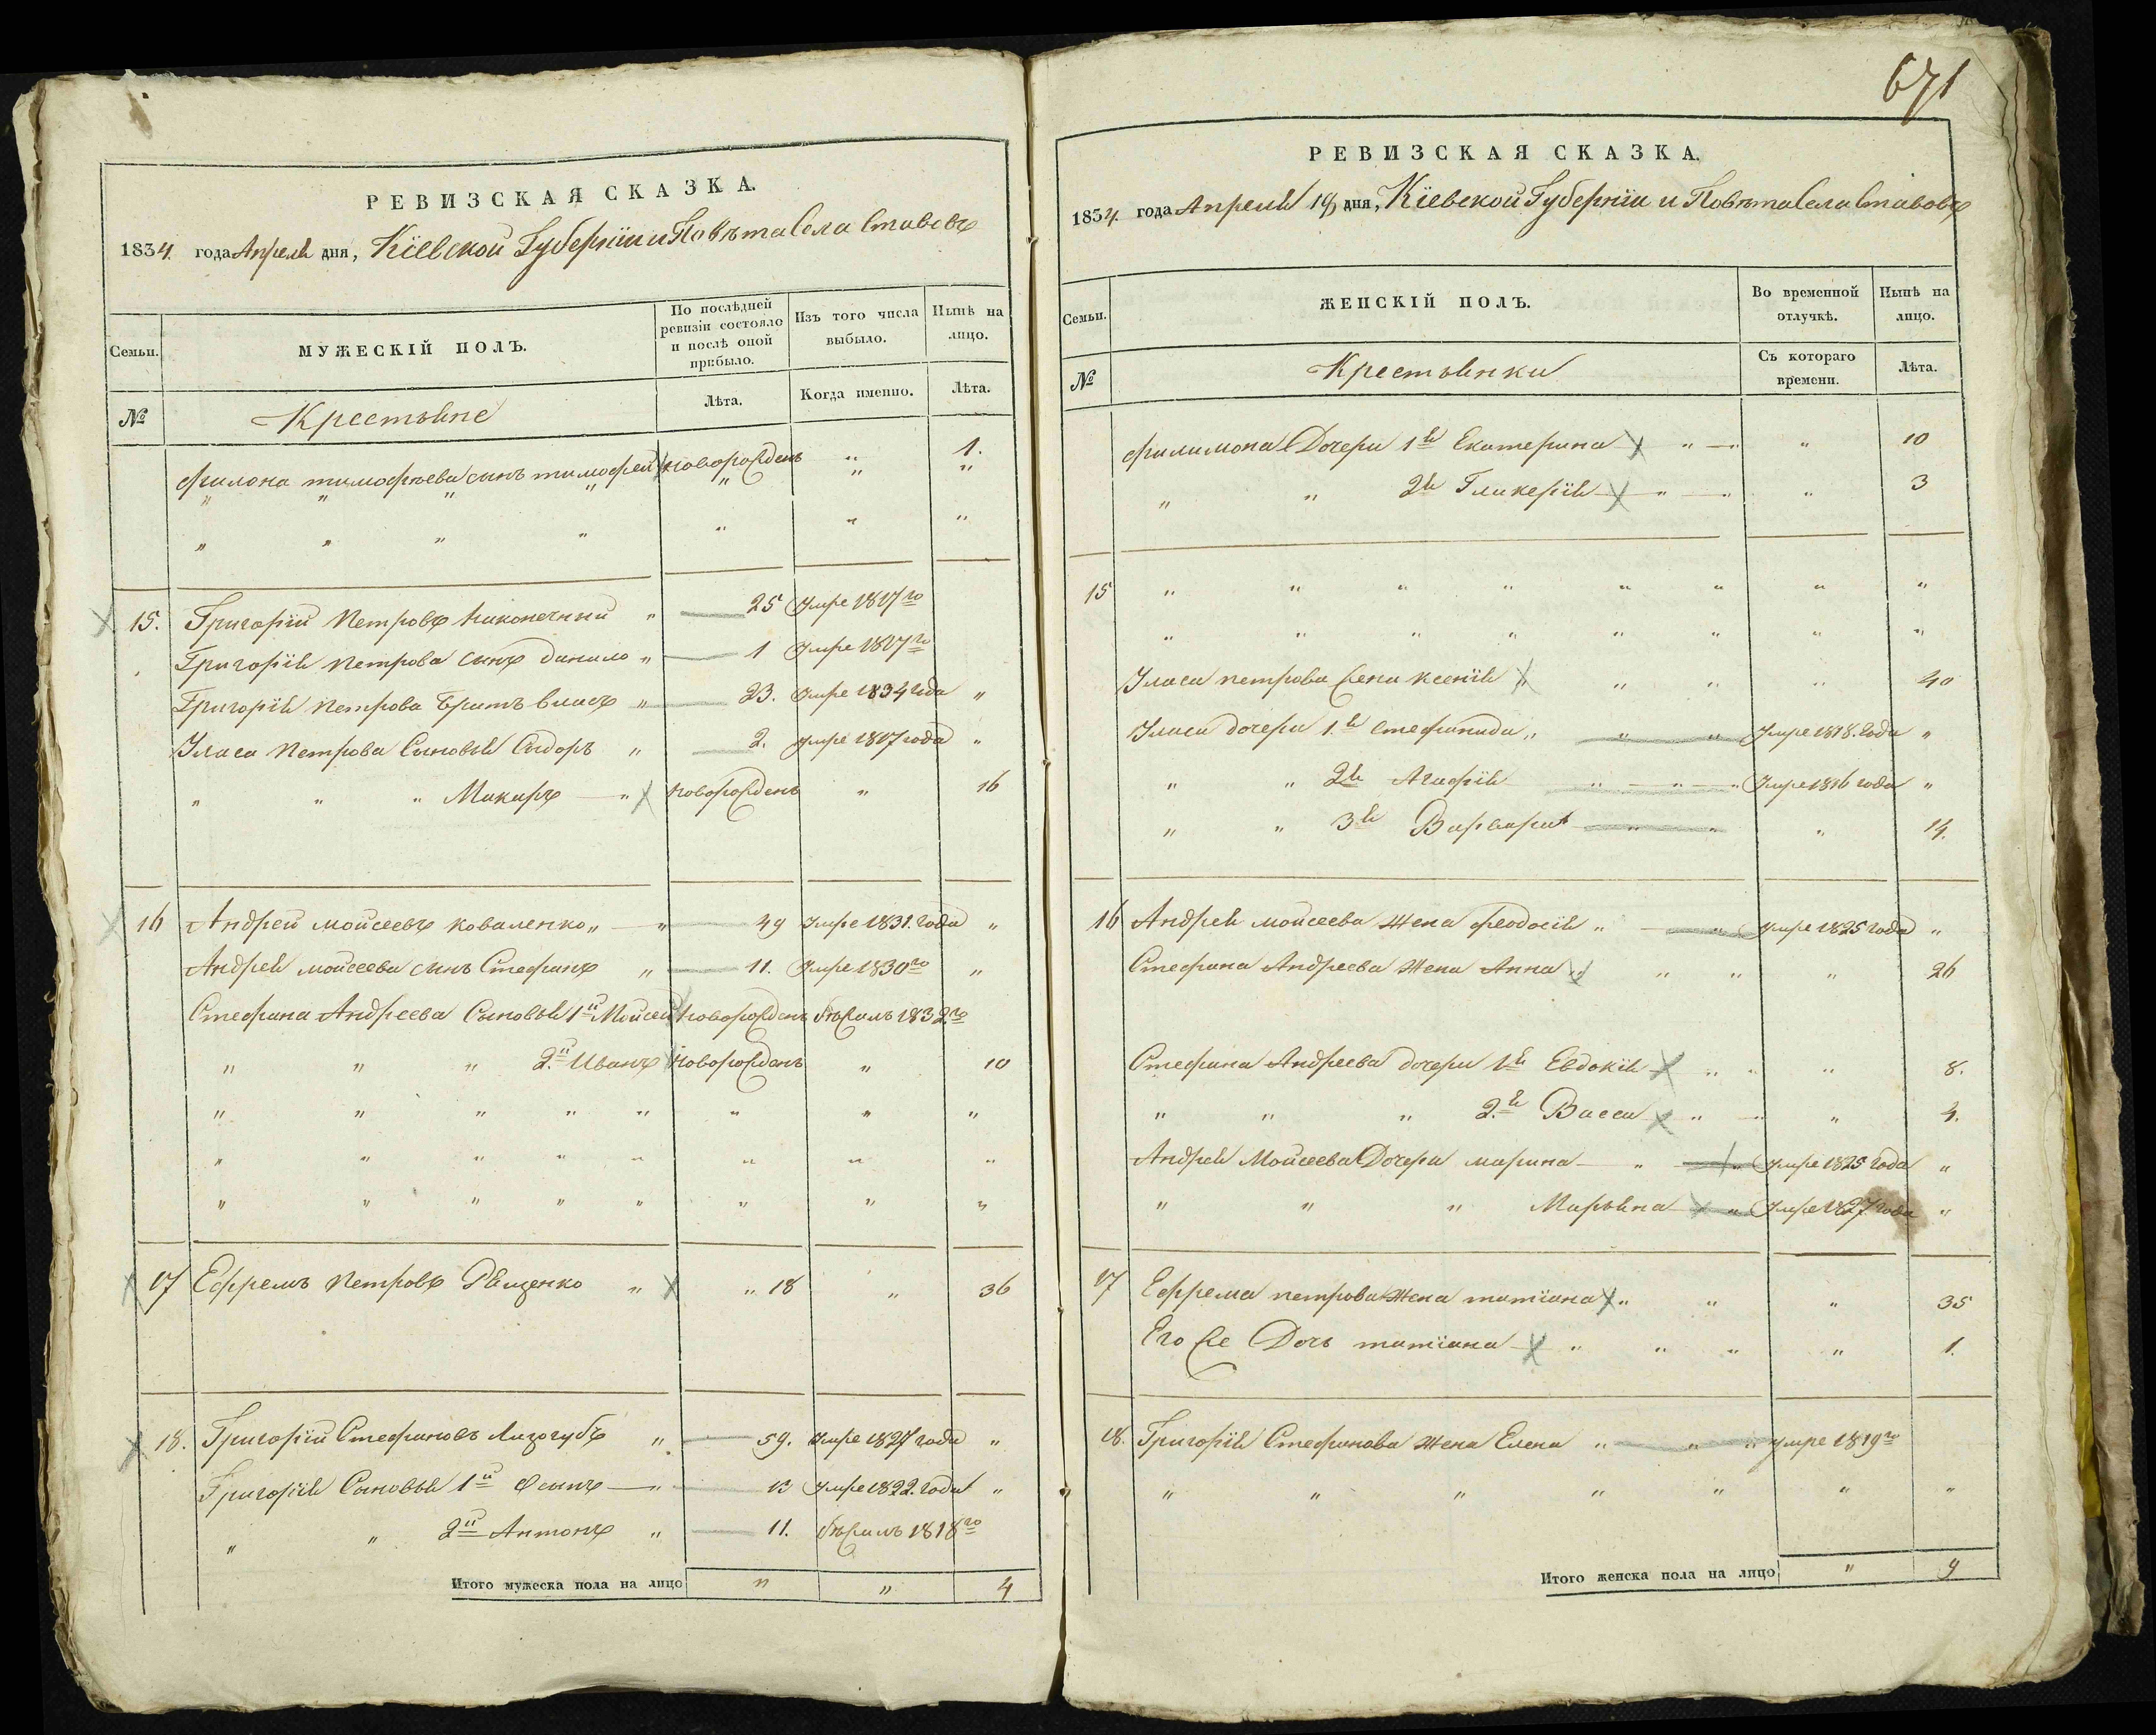 РЕВИЗСКАЯ СКАЗКА.
1834 года Апреля дня, Кіевской Губерніи и Повѣта Села Ставовъ
Семьи.
МУЖЕСКІЙ ПОЛЪ.
По послѣдней ревизіи состояло и послѣ оной прибыло.
Изъ того числа выбыло.
Нынѣ на лицо.
№
Крестьяне
Лѣта.
Когда именно.
Лѣта.
Филона тимофѣева сынъ тимофей новорожденъ " 1.
" " " " " " "
" " " " " " "
15. Григорій Петровъ " 25 Умре 1817го
Григорія Петрова сынъ данило " 1 Умре 1817го
Григорія Петрова братъ власъ " 23. Умре 1834 года "
Уласа Петрова Сыновья Сидоръ " 2. умре 1817 года "
" " " Макаръ " новорожденъ " 16
16 Андрей моисеевъ коваленко " " 49 Умре 1831. года "
Андрея моисеева сынъ Стефанъ " 11. Умре 1830го "
Стефана Андреева Сыновья 1й Моисей новорожденъ бѣжалъ 1832го
" " " 2й Иванъ новорожденъ " 10
" " " " " " " "
" " " " " " " "
" " " " " " " "
17 Ефремъ Петровъ " " 18 " 36
18. Григорій Стефановъ Лизогубъ " 59. Умре 1827 года "
Григорія Сыновья 1й Осипъ " 13 Умре 1822. года "
" " 2й Антонъ " 11. бѣжалъ 1818го
Итого мужеска пола на лицо " " 4
671
РЕВИЗСКАЯ СКАЗКА.
1834 года Апреля 19 дня, Кіевской Губерніи и Повѣта Села Ставовъ
Семьи.
ЖЕНСКІЙ ПОЛЪ.
Во временной отлучкѣ.
Нынѣ на лицо.
№
Крестьянки
Съ котораго времени.
Лѣта.
филимона Дочери 1я Екатерина " " " 10
" " 2я Гликерія " " " 3
15 " " " " " " " "
" " " " " " " "
Уласа петрова жена ксенія " " " " 40
Уласа дочери 1я Стефанида " " " Умре 1818. года "
" " 2я Агафія " " " Умре 1816 года "
" " 3я Варвара " " " 14.
16 Андрея моисеева жена феодосія " " умре 1825 года "
Стефана Андреева жена Анна " " " " 26
Стефана Андреева дочери 1я Евдокія " " " 8.
" " " 2я Васса " " " 4.
Андрея Моисеева Дочери марина " " Умре 1825 года "
" " " Марьяна " Умре 1827 года "
17 Ефрема петрова жена татіана " " " 35
Его же Дочь татіана " " " " 1.
18. Григорія Стефанова жена Елена " " " умре 1819го
" " " " " " "
Итого женска пола на лицо " 9